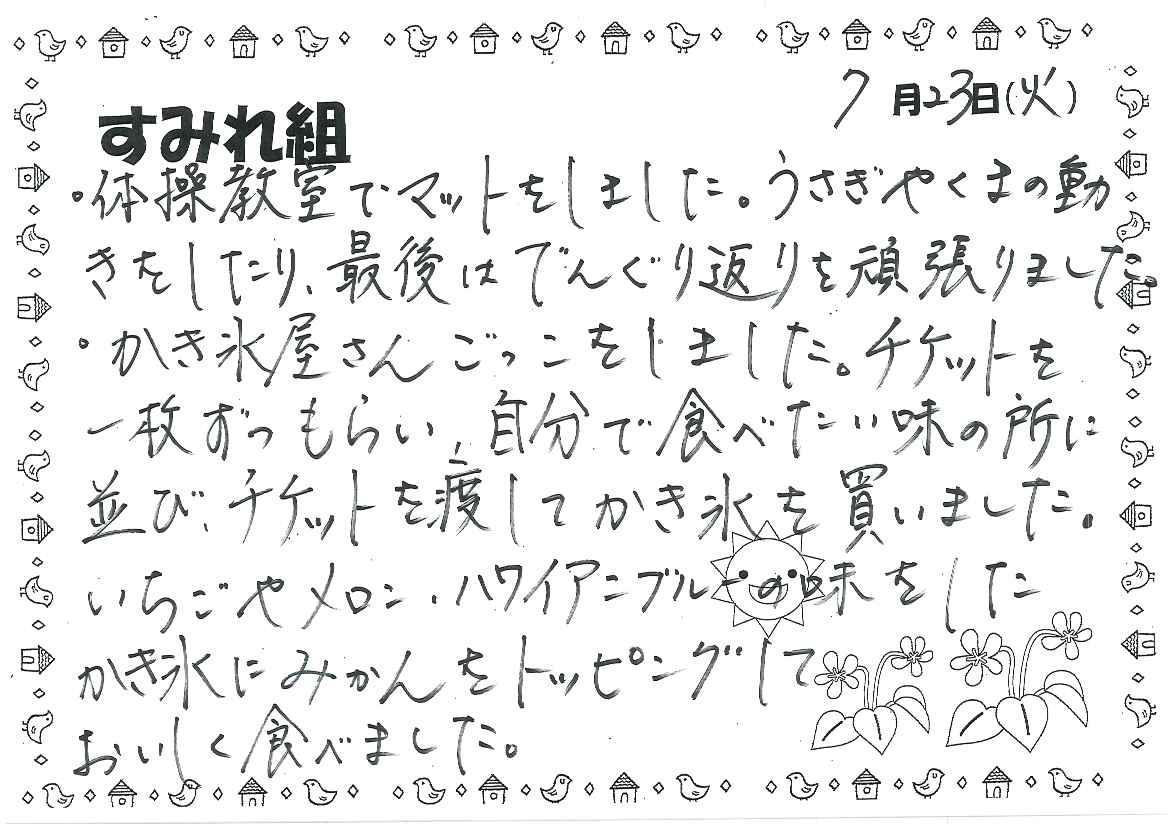 7月23日(火)
すみれ組
・体操教室でマットをしました。うさぎやくまの動
きをしたり、最後はでんぐり返りを頑張りました。
・かき氷屋さんごっこをしました。チケットを
一枚ずつもらい、自分で食べたい味の所に
並び、チケットを渡してかき氷を買いました。
いちごやメロン、ハワイアンブルーの味をした
かき氷にみかんをトッピングして
おいしく食べました。